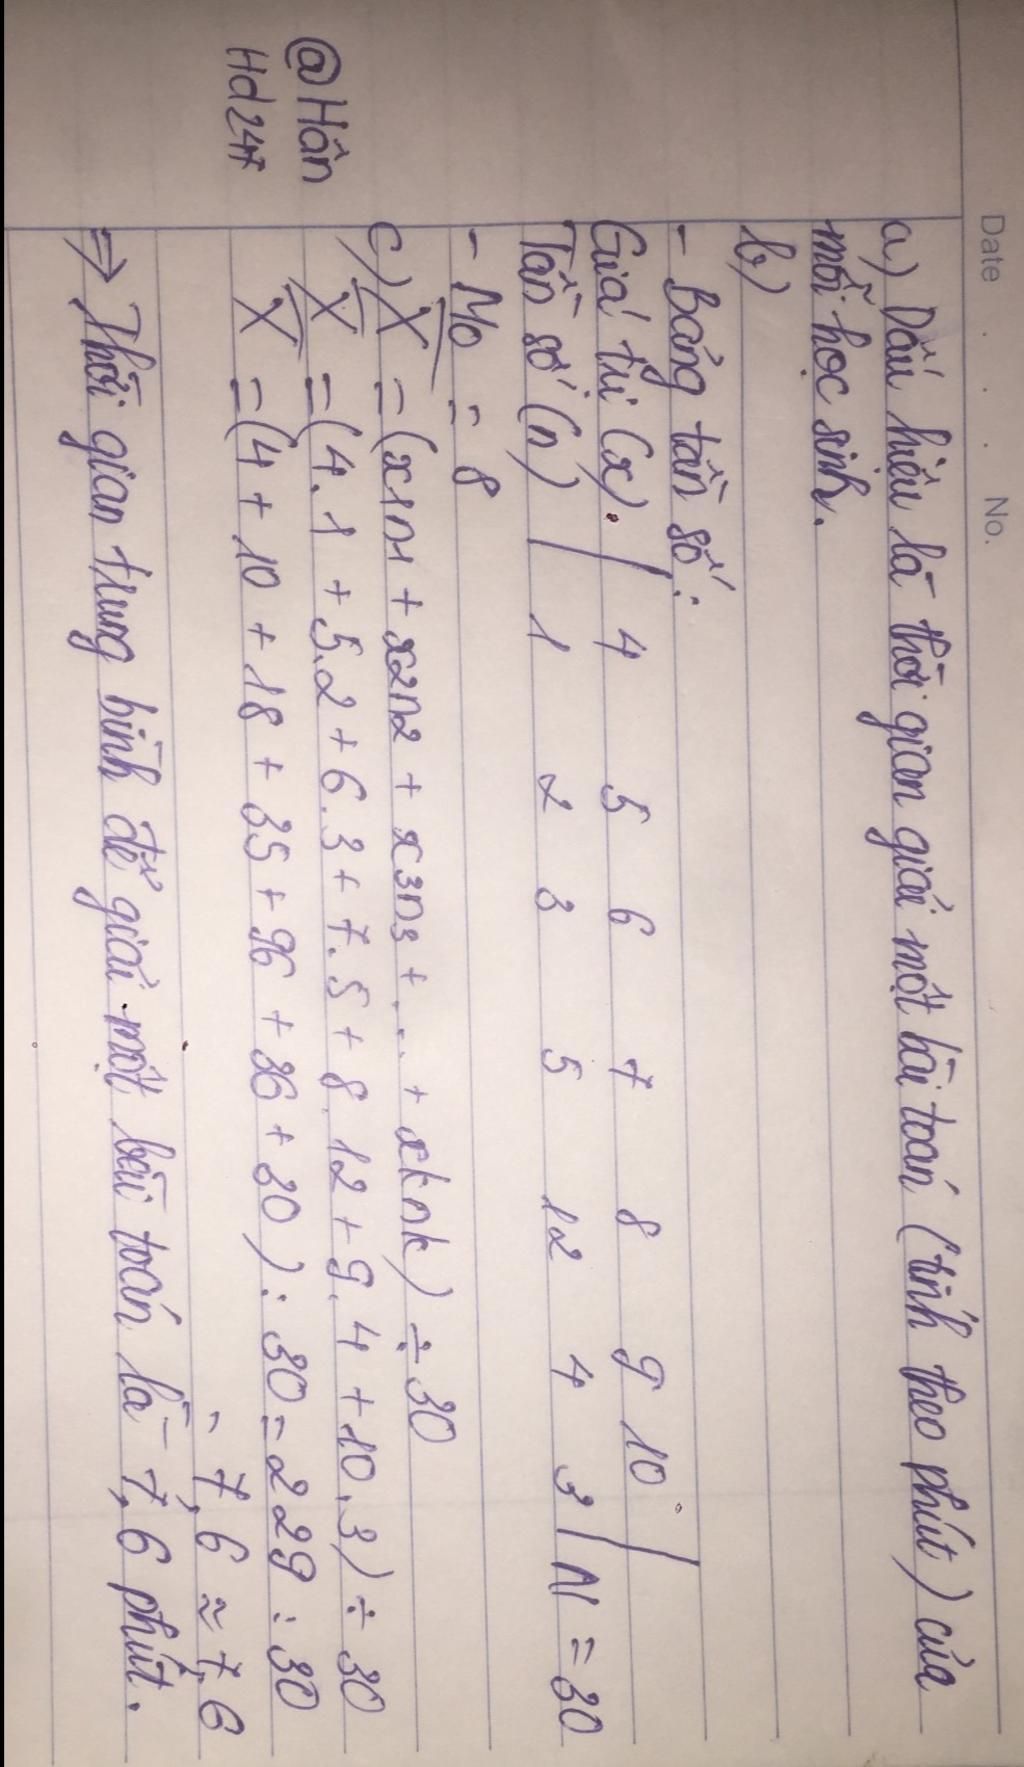 Date . . . No.
a) Dấu hiệu là thời gian giải một bài toán (tính theo phút) của
mỗi học sinh.
b)
- Bảng tần số:
Giá trị (x) | 4 5 6 7 8 9 10 |
Tần số (n) | 1 2 3 5 12 4 3 | N = 30
- Mo = 8
c) X = (x1n1 + x2n2 + x3n3 + ... + xknk) ÷ 30
@Hân X = (4.1 + 5.2 + 6.3 + 7.5 + 8.12 + 9.4 + 10.3) ÷ 30
Hd247 X = (4 + 10 + 18 + 35 + 96 + 36 + 30) : 30 = 229 : 30
= 7,6 ≈ 7,6
⇒ Thời gian trung bình để giải một bài toán là 7,6 phút.